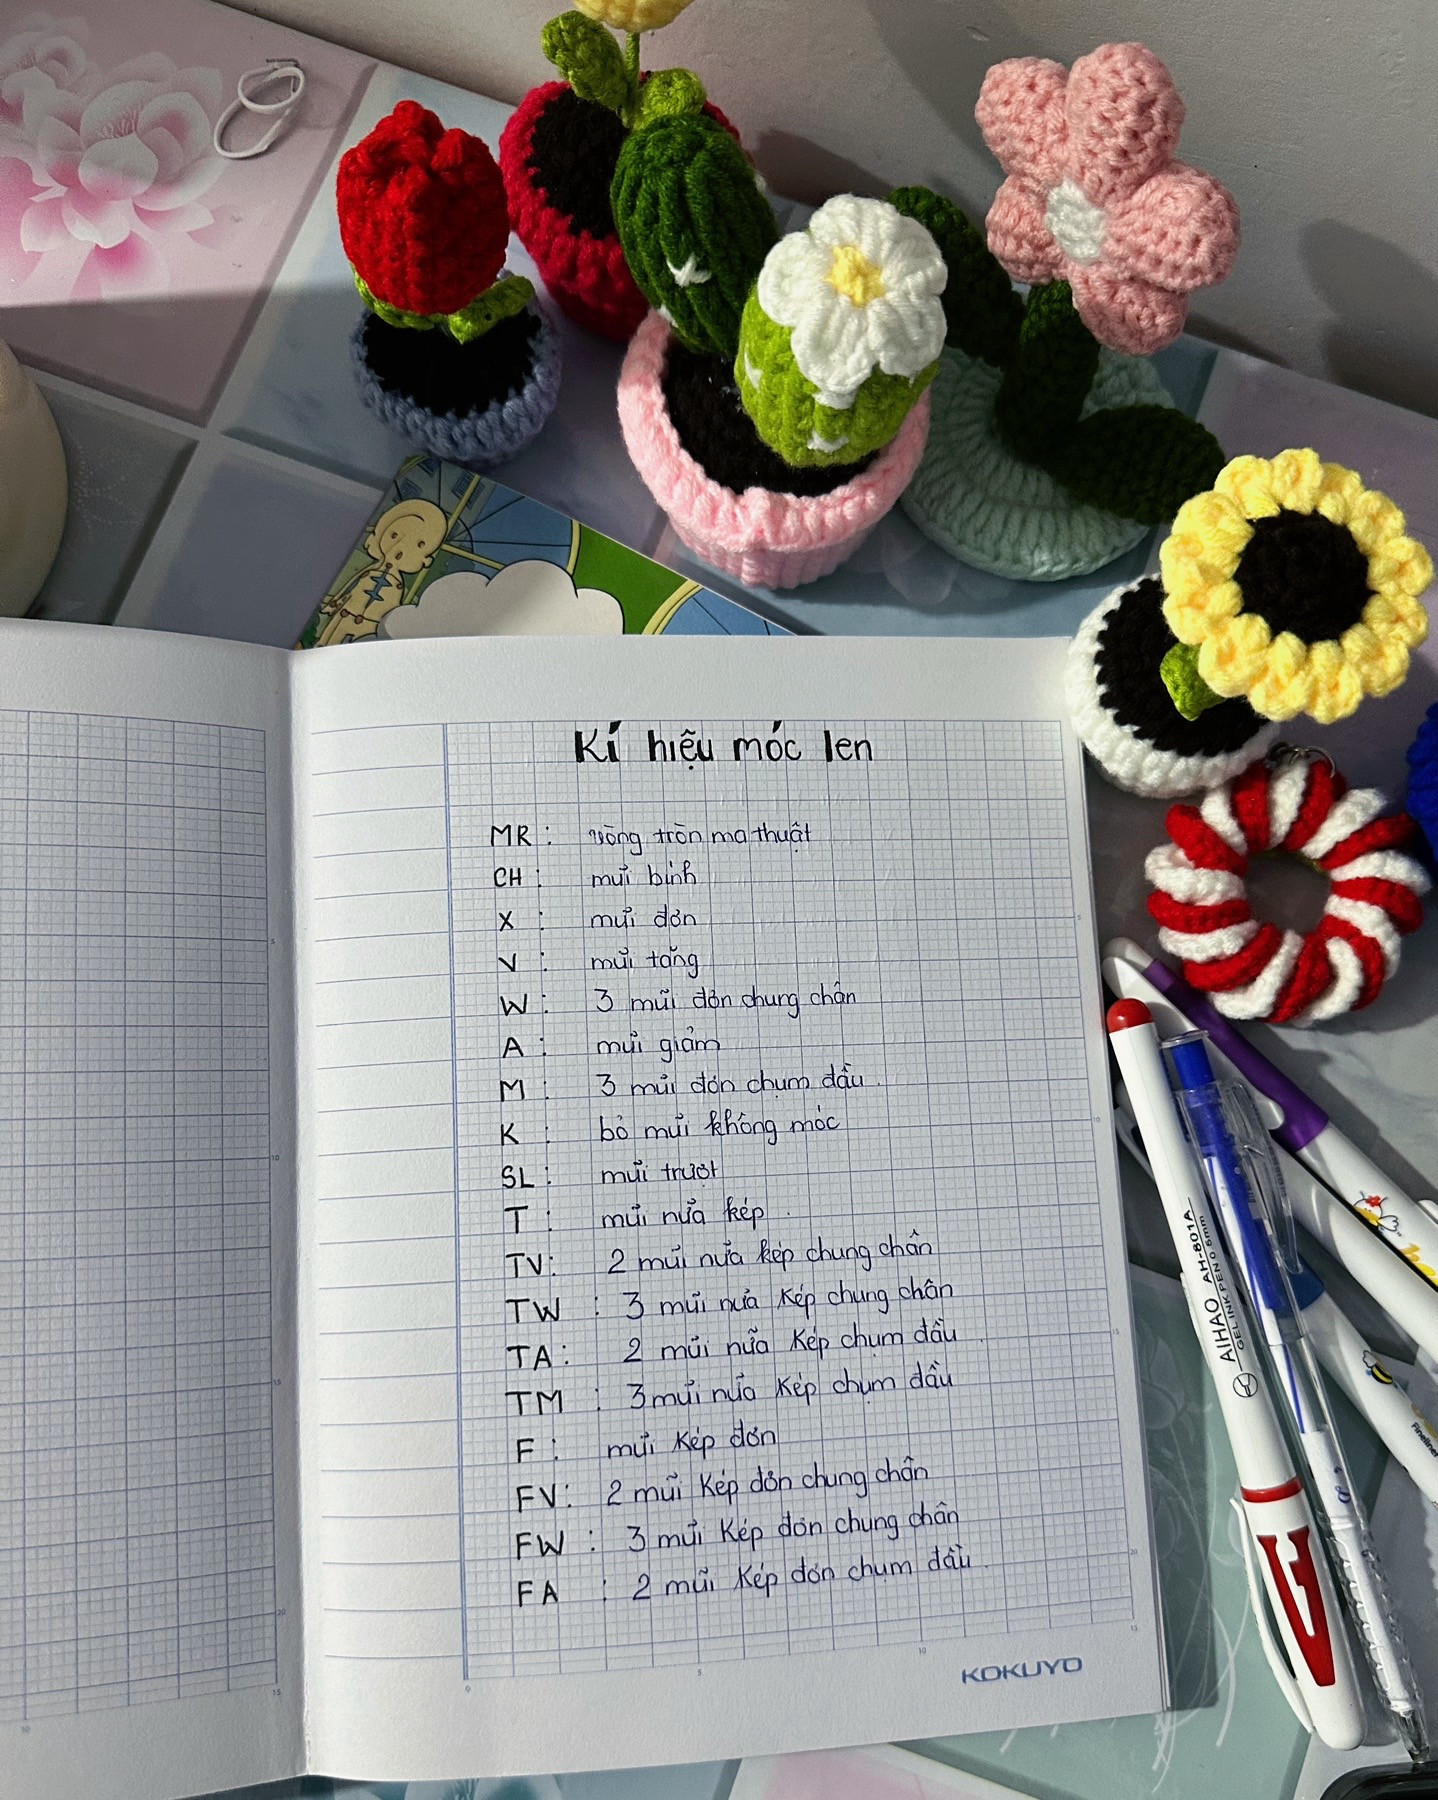 Kí hiệu móc len
MR: vòng tròn ma thuật
CH: mũi bính
X: mũi đơn
V: mũi tăng
W: 3 mũi đơn chung chân
A: mũi giảm
M: 3 mũi đơn chụm đầu.
K: bỏ mũi không móc
SL: mũi trượt
T: mũi nửa kép.
TV: 2 mũi nửa kép chung chân
TW: 3 mũi nửa kép chung chân
TA: 2 mũi nửa kép chụm đầu.
TM: 3 mũi nửa kép chụm đầu
F: mũi kép đơn
FV: 2 mũi kép đơn chung chân
FW: 3 mũi kép đơn chung chân
FA: 2 mũi kép đơn chụm đầu.
KOKUYO
AIHAO AH-801A
GEL INK PEN 0.5mm
Fineliner